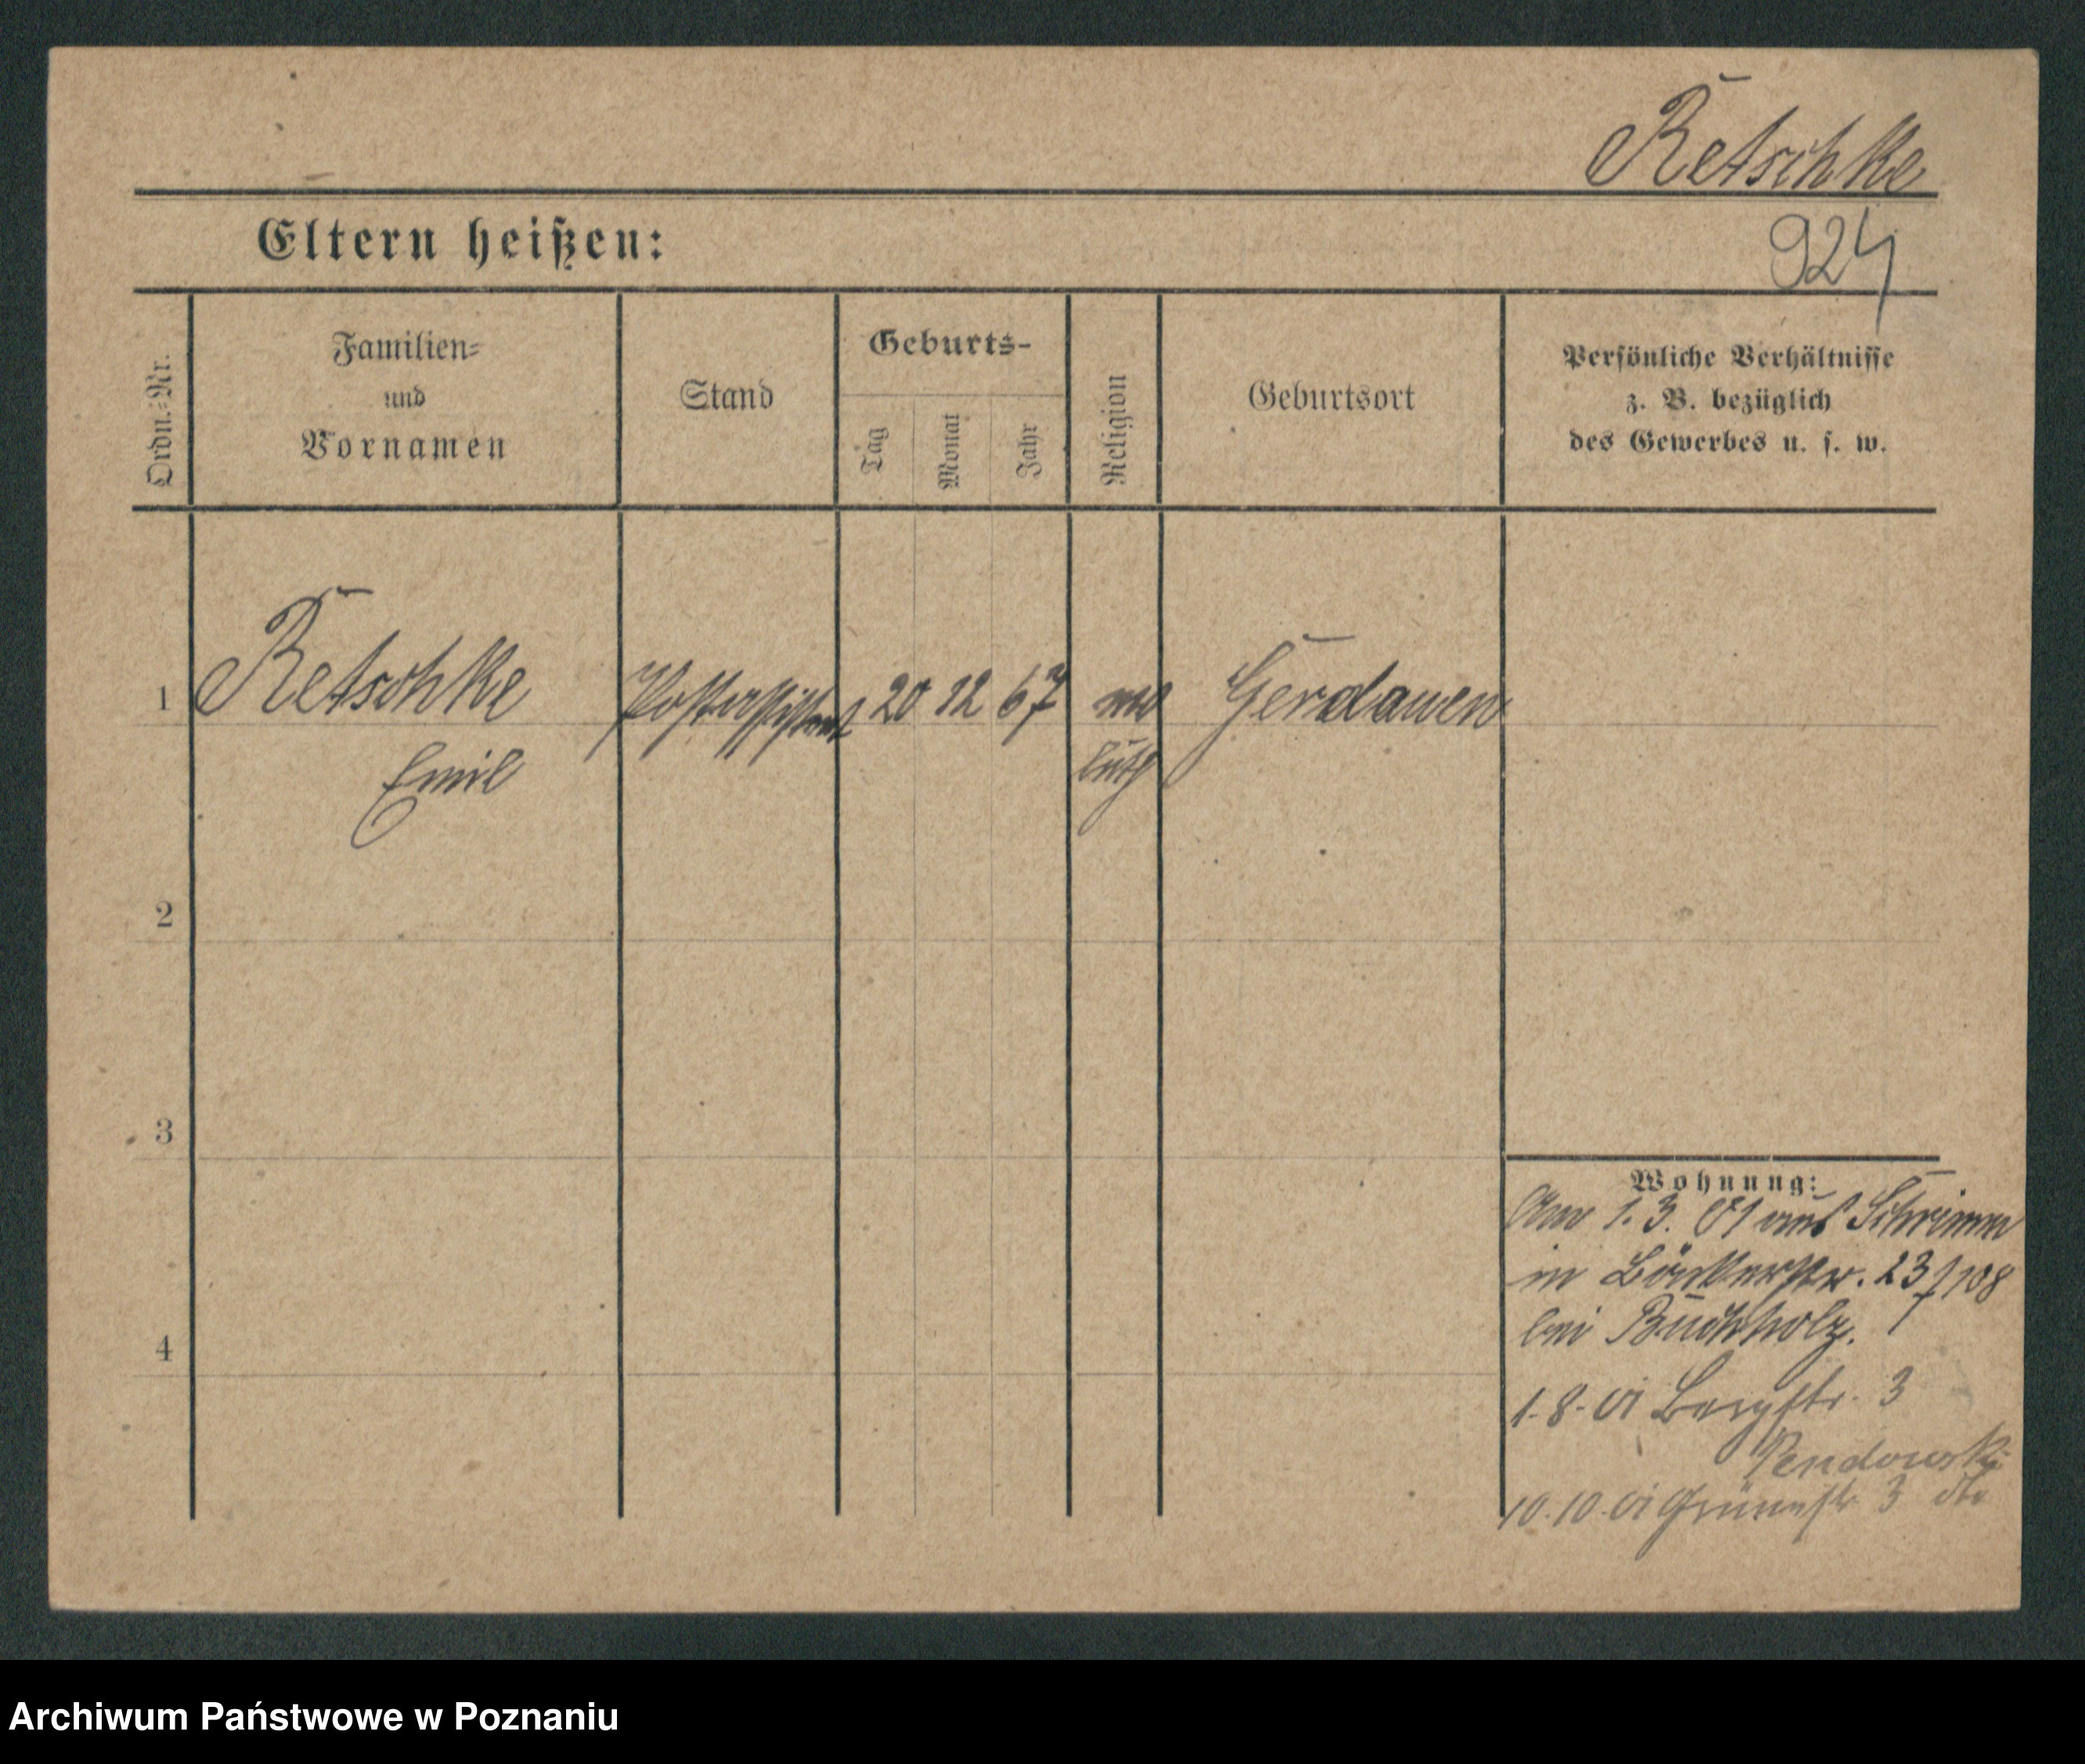 Retschke
Eltern heißen:
924
Ordn.=Nr.
Familien=
und
Vornamen
Stand
Geburts-
Tag
Monat
Jahr
Religion
Geburtsort
Persönliche Verhältnisse
z. B. bezüglich
des Gewerbes u. s. w.
1
Retschke
Postassistent
20 12 67
Gerdauen
Emil
luth
2
3
4
Wohnung:
Am 1. 3. 01 aus Schrimm
in Bäckerstr. 23
bei Buchholz.
1-8-01 Bergstr. 3
Pendowski
10.10.01 Grünestr 3 dto
Archiwum Państwowe w Poznaniu